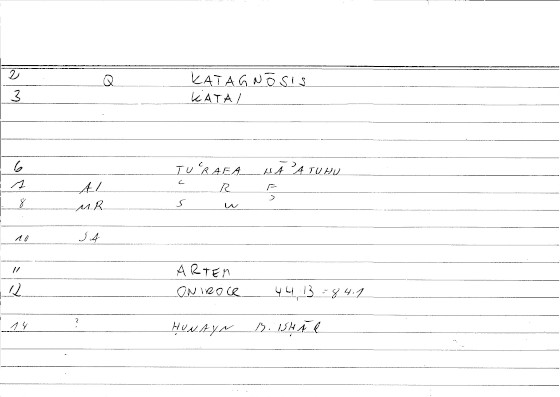 2 Q KATAGNŌSIS
3 KATA/
6 TUʿRAFA MĀʾATUHU
7 A/ ʿ R F
8 MR S W ʾ
10 JA
11 ARTEM
12 ONIROCR 44,13 = 84.1
14 ? ḤUNAYN B. ISḤĀQ